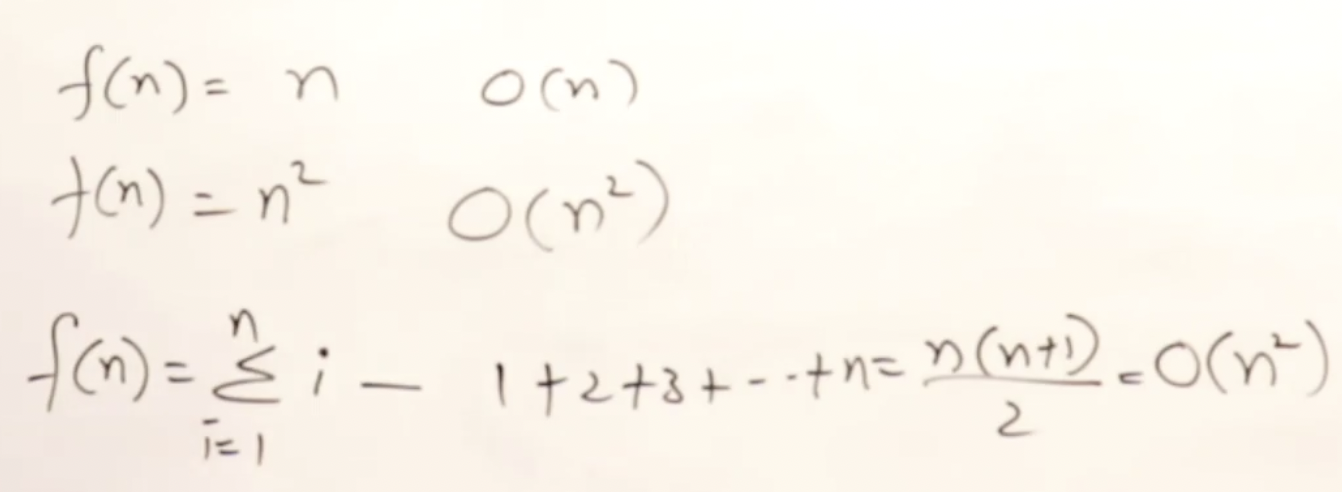 f(n) = n O(n)
f(n) = n² O(n²)
f(n) = n∑i=1 i — 1+2+3+--·+n = n(n+1)/2 = O(n²)